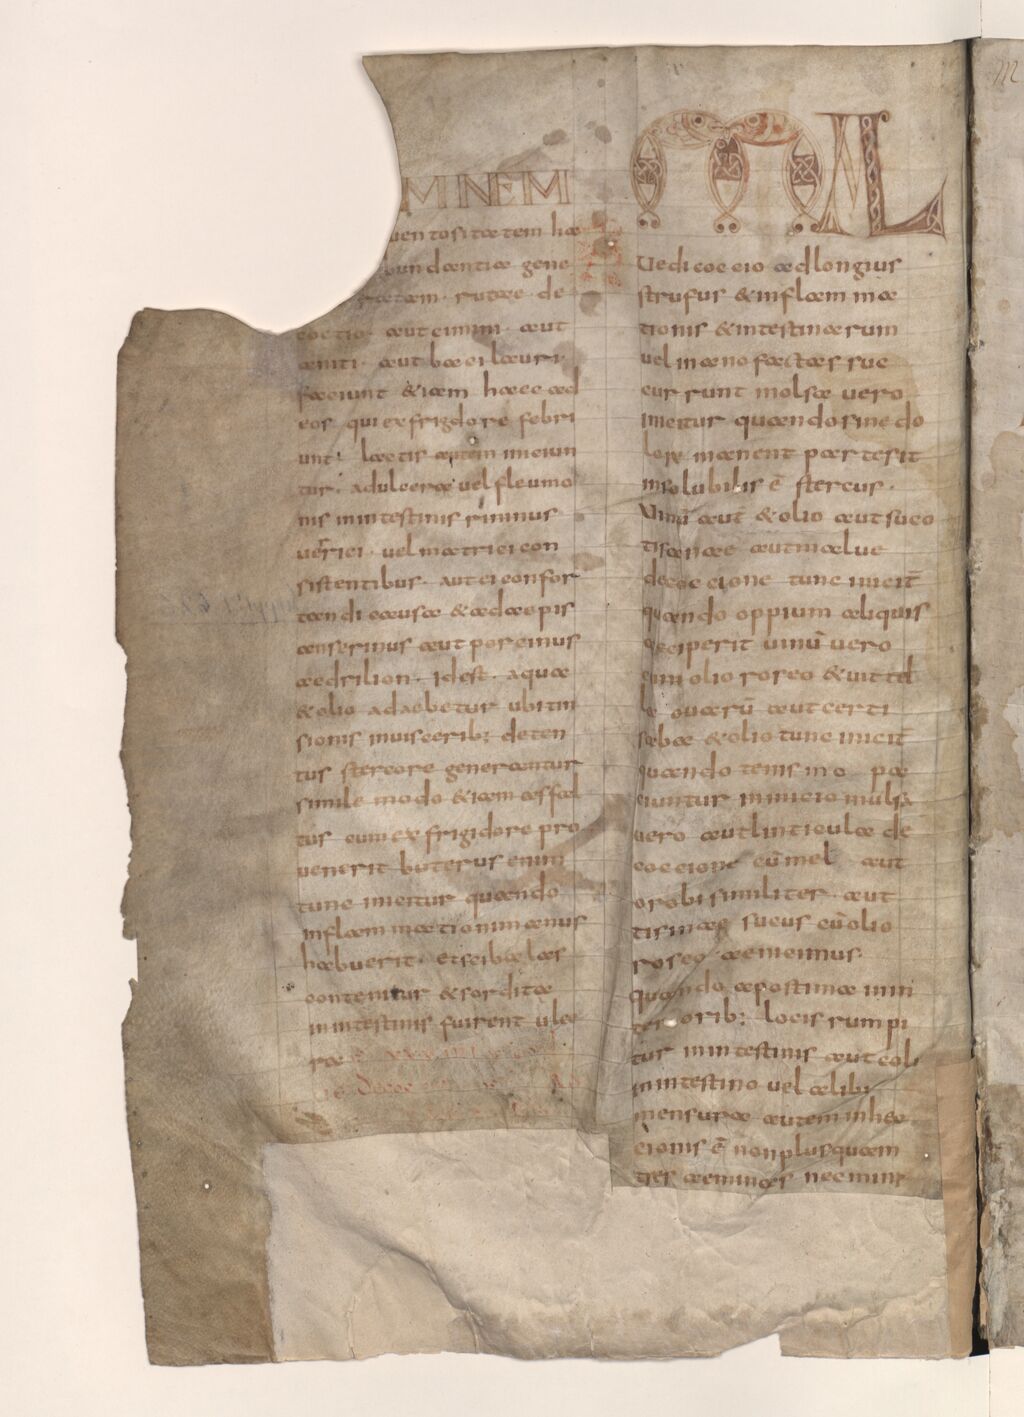 MNEM
uentositatem hae
bundantia gene
ratam. rutae. de
coctio. aut cimini. aut
aniti. aut bacilauri.
faciunt &iam haec ad
eos qui exfrigdore febri
unt. lactis autem iniciun
tur. adulcera uel fleumo
nis inintestinis
uel matrici con
sistentibus. aut ei confor
tandi causa & adaepis
anserinus aut porcinus
aedrilion. idest. aqua
& olio adaebetur ubi tin
sionis inuiscerib; deten
tus stercore generantur
simile modo &iam asfal
tus cumexfrigidore pro
uenerit buterus enim
tunc inicitur quando
inflammationinmanus
habuerit. etscibalas
contenitur & sordita
inintestinis fuirent ulce
ra
MML
uedicoccio adlongius
strufus &inflamma
tionis &intestinarum
uel mano factas suc
cur runt molsa uero
inicitur quando sine do
lore manent partes it
insolubilis ē stercus.
Vinū aut & olio aut suco
tisanae aut malue
decoccione tunc inicit̄
quando oppium aliquis
acciperit uinū uero
cum olio roseo &uitel
la ouarū aut certi
saba &olio tunc inicit̄
quando tenismo pa
ciuntur ininicio mulsa
uero autlinticula de
coccione cū mel aut
orobi similiter aut
tisinae sucus cū olio
roseo aenicimus.
quando apostima inin
ter orib; locis rumpi
tur inintestinis aut coli
inintestino uel alibi
mensura autem iniec
cionis ē non plus quam
tres aeminas nec minus